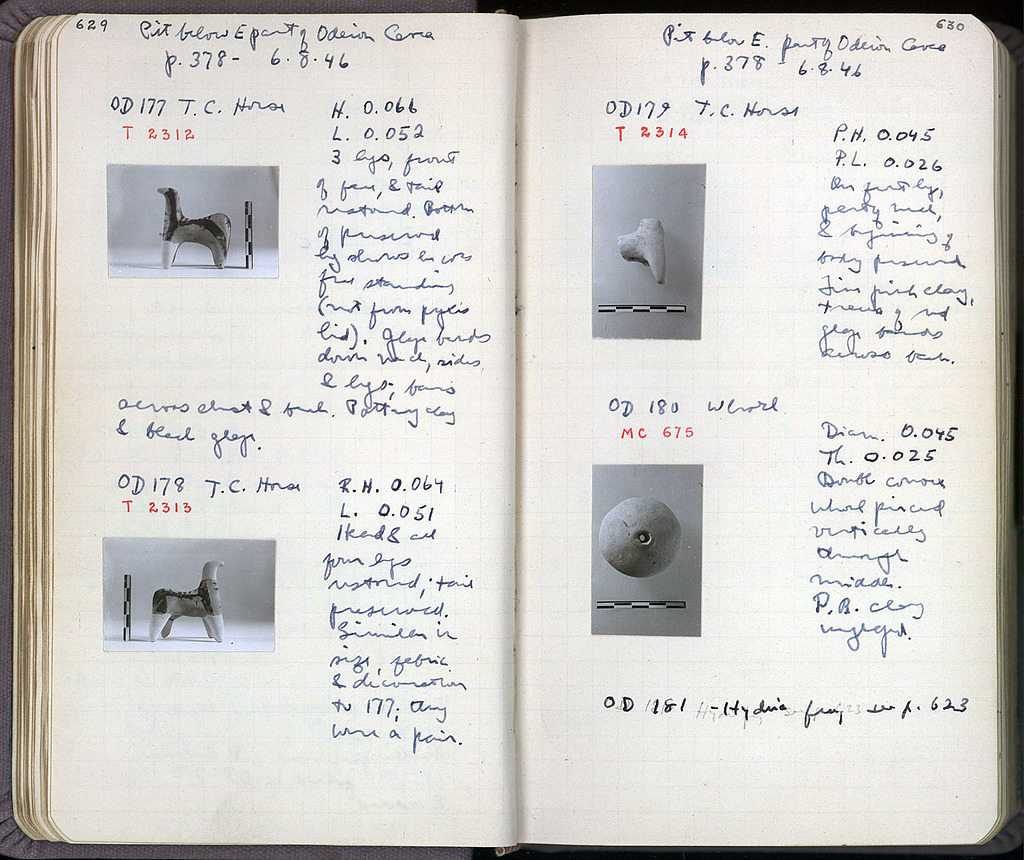 629
Pit below E part of Odeion Cavea
p. 378- 6.8.46
OD 177 T.C. Horse
T 2312
H. 0.066
L. 0.052
3 legs, front
of face, & tail
restored. Bottom
of preserved
leg shows it was
free standing
(not from pyxis
lid). Glaze bands
down neck, sides
& legs; bars
across chest & back. Pottery clay
& black glaze.
OD 178 T.C. Horse
T 2313
P.H. 0.064
L. 0.051
Head & all
four legs
restored; tail
preserved.
Similar in
size, fabric
& decoration
to 177; they
were a pair.
630
Pit below E. part of Odeion Cavea
p. 378 6.8.46
OD 179 T.C. Horse
T 2314
P.H. 0.045
P.L. 0.026
One front leg,
part of neck,
& beginning of
body preserved
Fine pink clay,
traces of red
glaze bands
across back.
OD 180 Whorl
MC 675
Diam. 0.045
Th. 0.025
Double convex
whorl pierced
vertically
through
middle.
P.B. clay
unglazed.
OD 181 - Hydria frag see p. 623